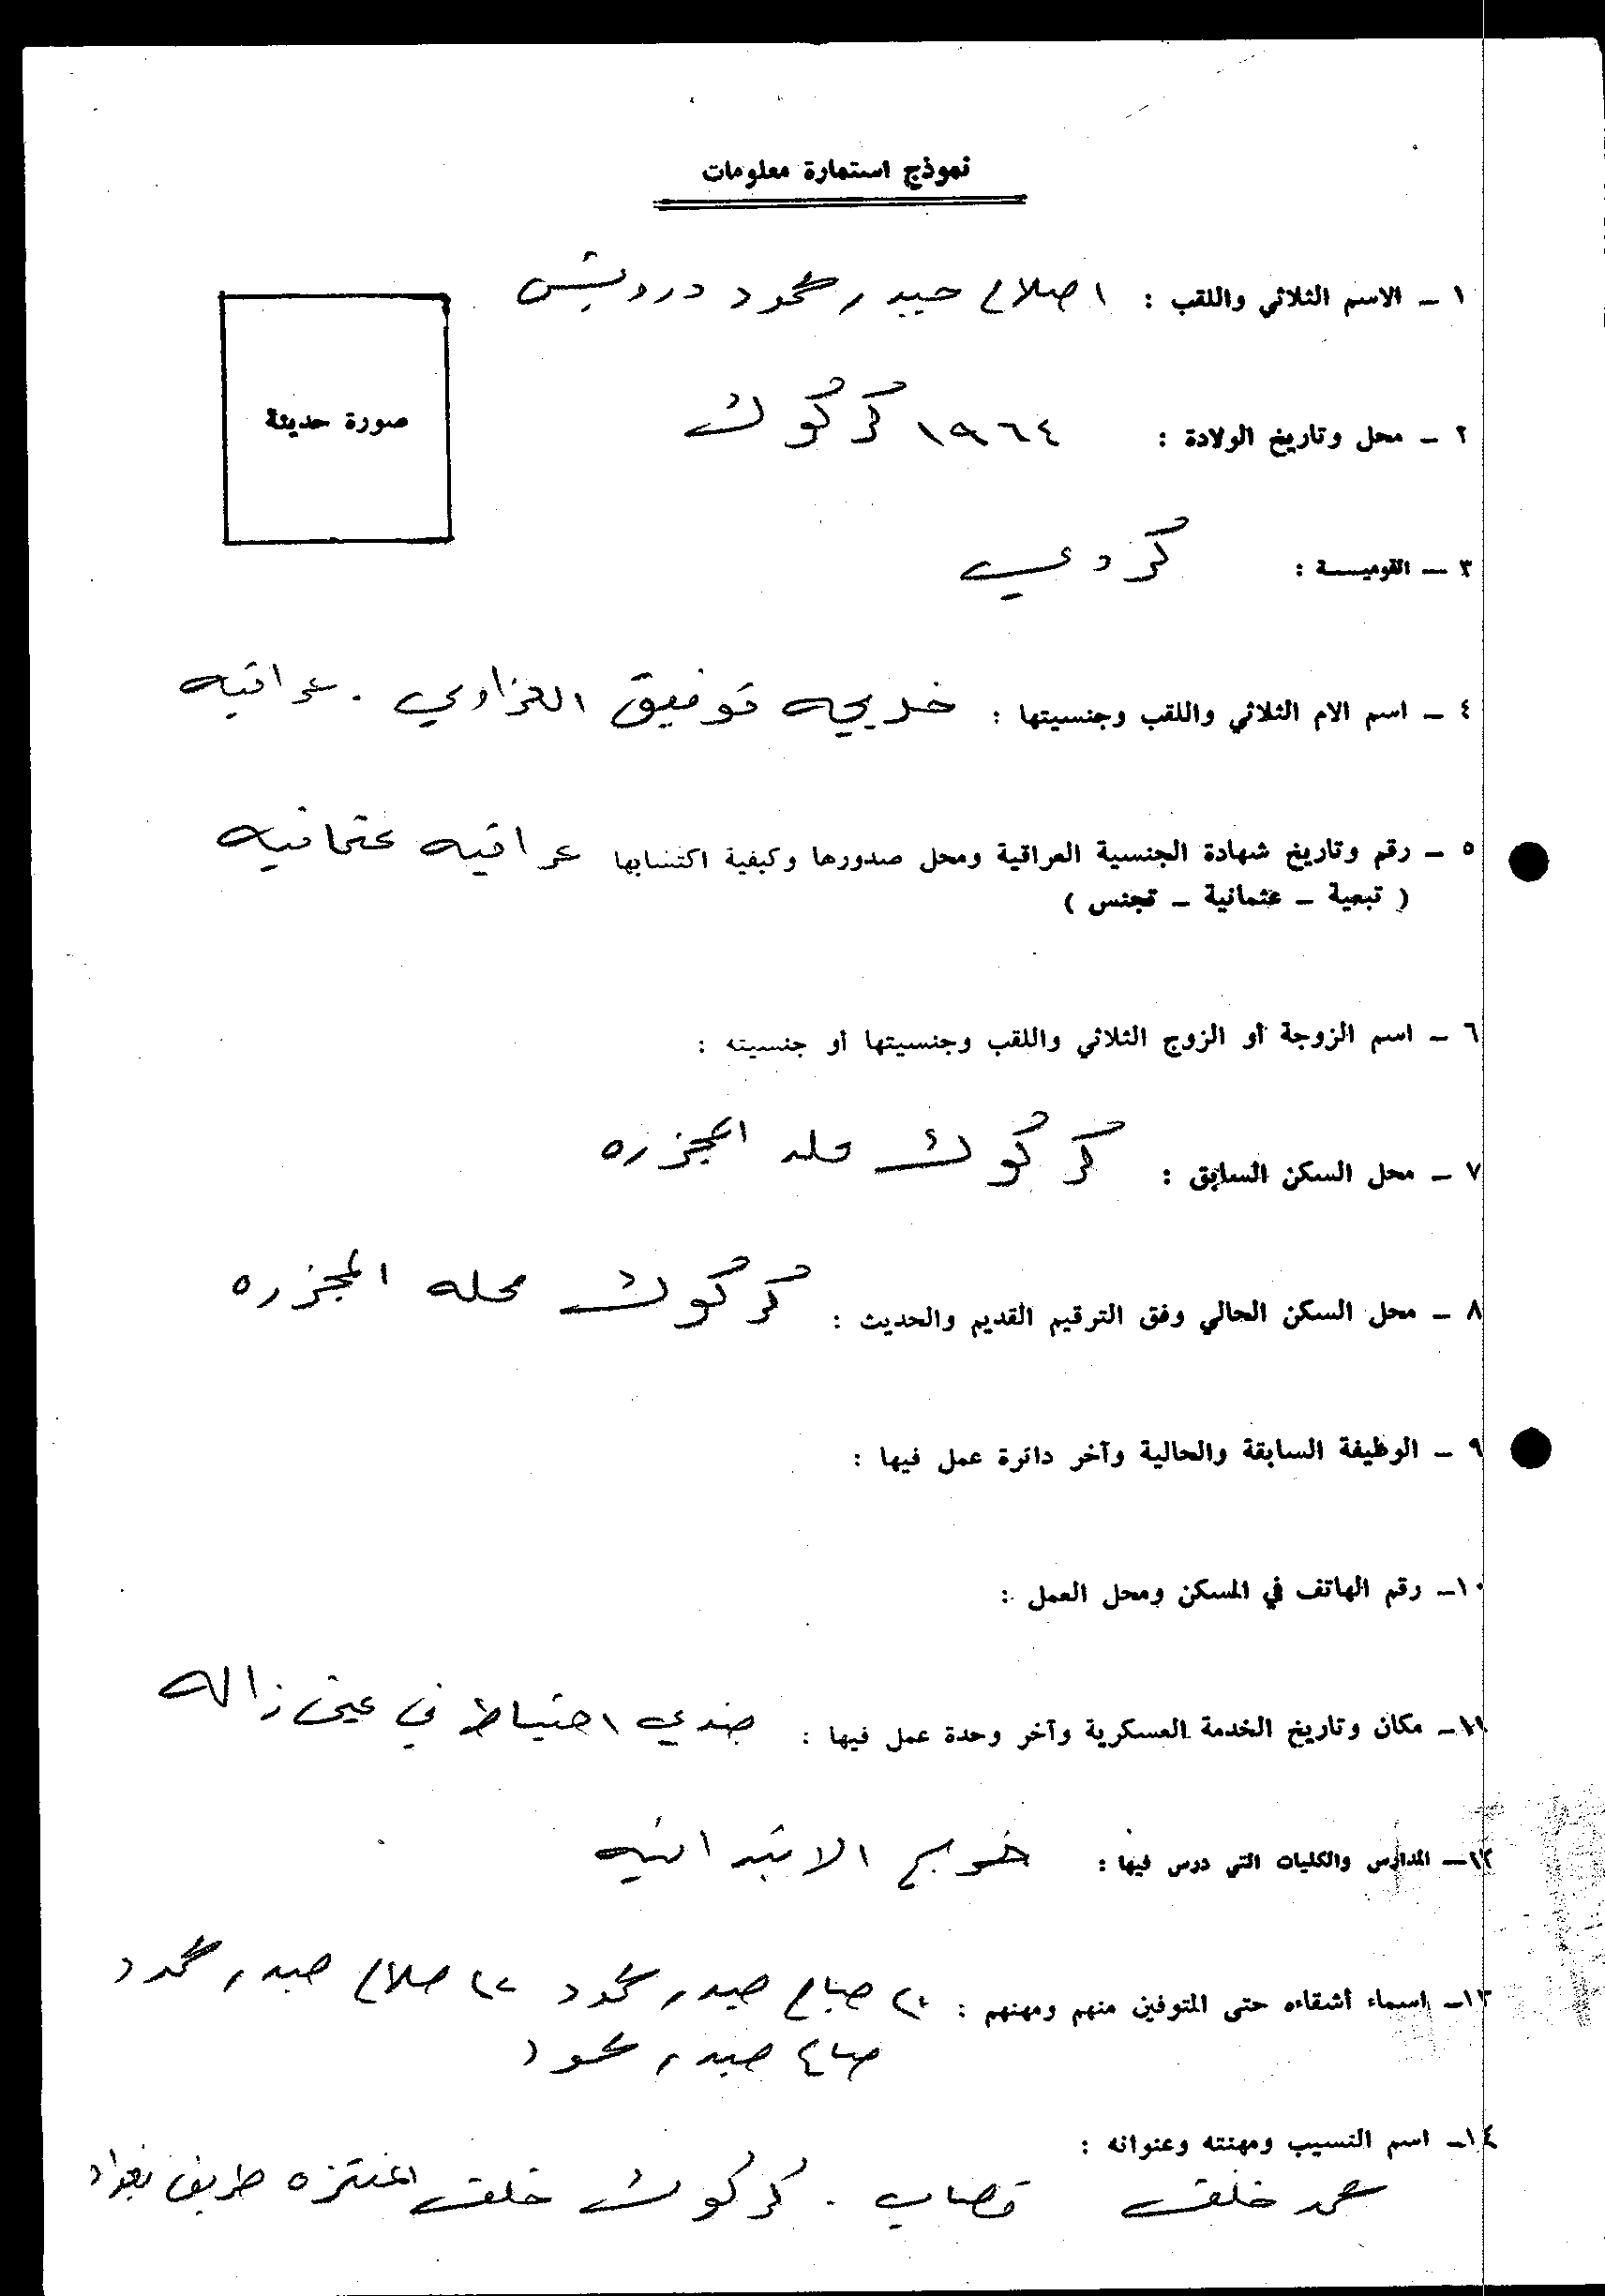 نموذج استمارة معلومات
١ - الاسم الثلاثي واللقب : اصلاح حيدر محمود درويش
صورة حديثة
٢ - محل وتاريخ الولادة : ١٩٦٤ كركوك
٣ - القوميـــة : كردي
٤ - اسم الام الثلاثي واللقب وجنسيتها : خديجه توفيق العزاوي . عراقيه
٥ - رقم وتاريخ شهادة الجنسية العراقية ومحل صدورها وكيفية اكتسابها عراقيه عثمانيه
( تبعية - عثمانية - تجنس )
٦ - اسم الزوجة أو الزوج الثلاثي واللقب وجنسيتها أو جنسيته :
٧ - محل السكن السابق : كركوك محله المجزره
٨ - محل السكن الحالي وفق الترقيم القديم والحديث : كركوك محله المجزره
٩ - الوظيفة السابقة والحالية وآخر دائرة عمل فيها :
١٠- رقم الهاتف في المسكن ومحل العمل :
١١- مكان وتاريخ الخدمة العسكرية وآخر وحدة عمل فيها : جندي احتياط في عين زاله
١٢- المدارس والكليات التي درس فيها : خريج الابتدائيه
١٣- اسماء أشقاءه حتى المتوفين منهم ومهنهم : صباح حيدر محمود صلاح حيدر محمود
حيدر محمود
١٤- اسم النسيب ومهنته وعنوانه :
محمد خلف قصاب . كركوك خلف المنتزه طريق بغداد